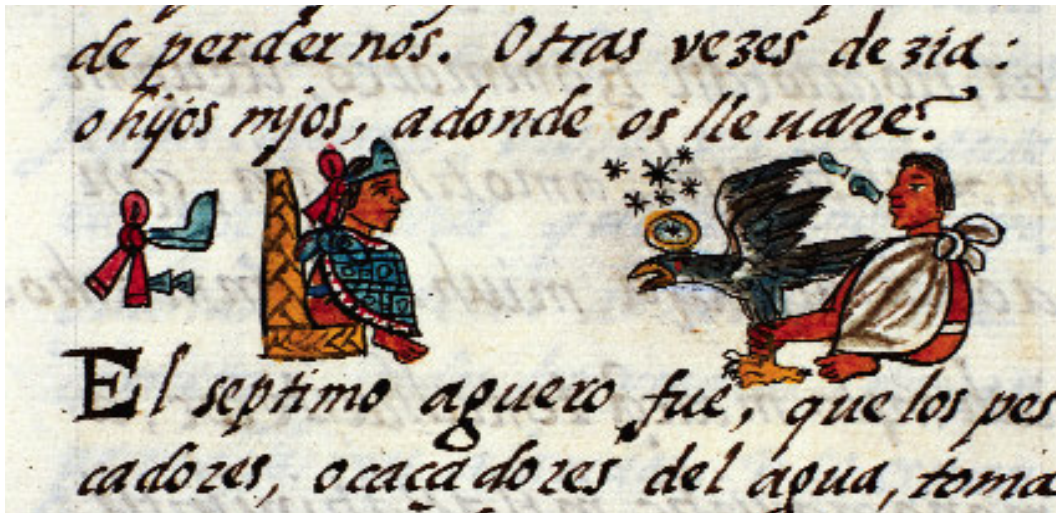 de perder nos. Otras vezes dezia:
o hijos mjos, adonde os lleuare?
El septimo aguero fue, que los pes
cadores, o caçadores del agua, toma